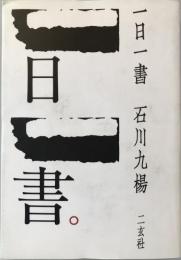 一日一書 石川九楊
二玄社
一日一書。